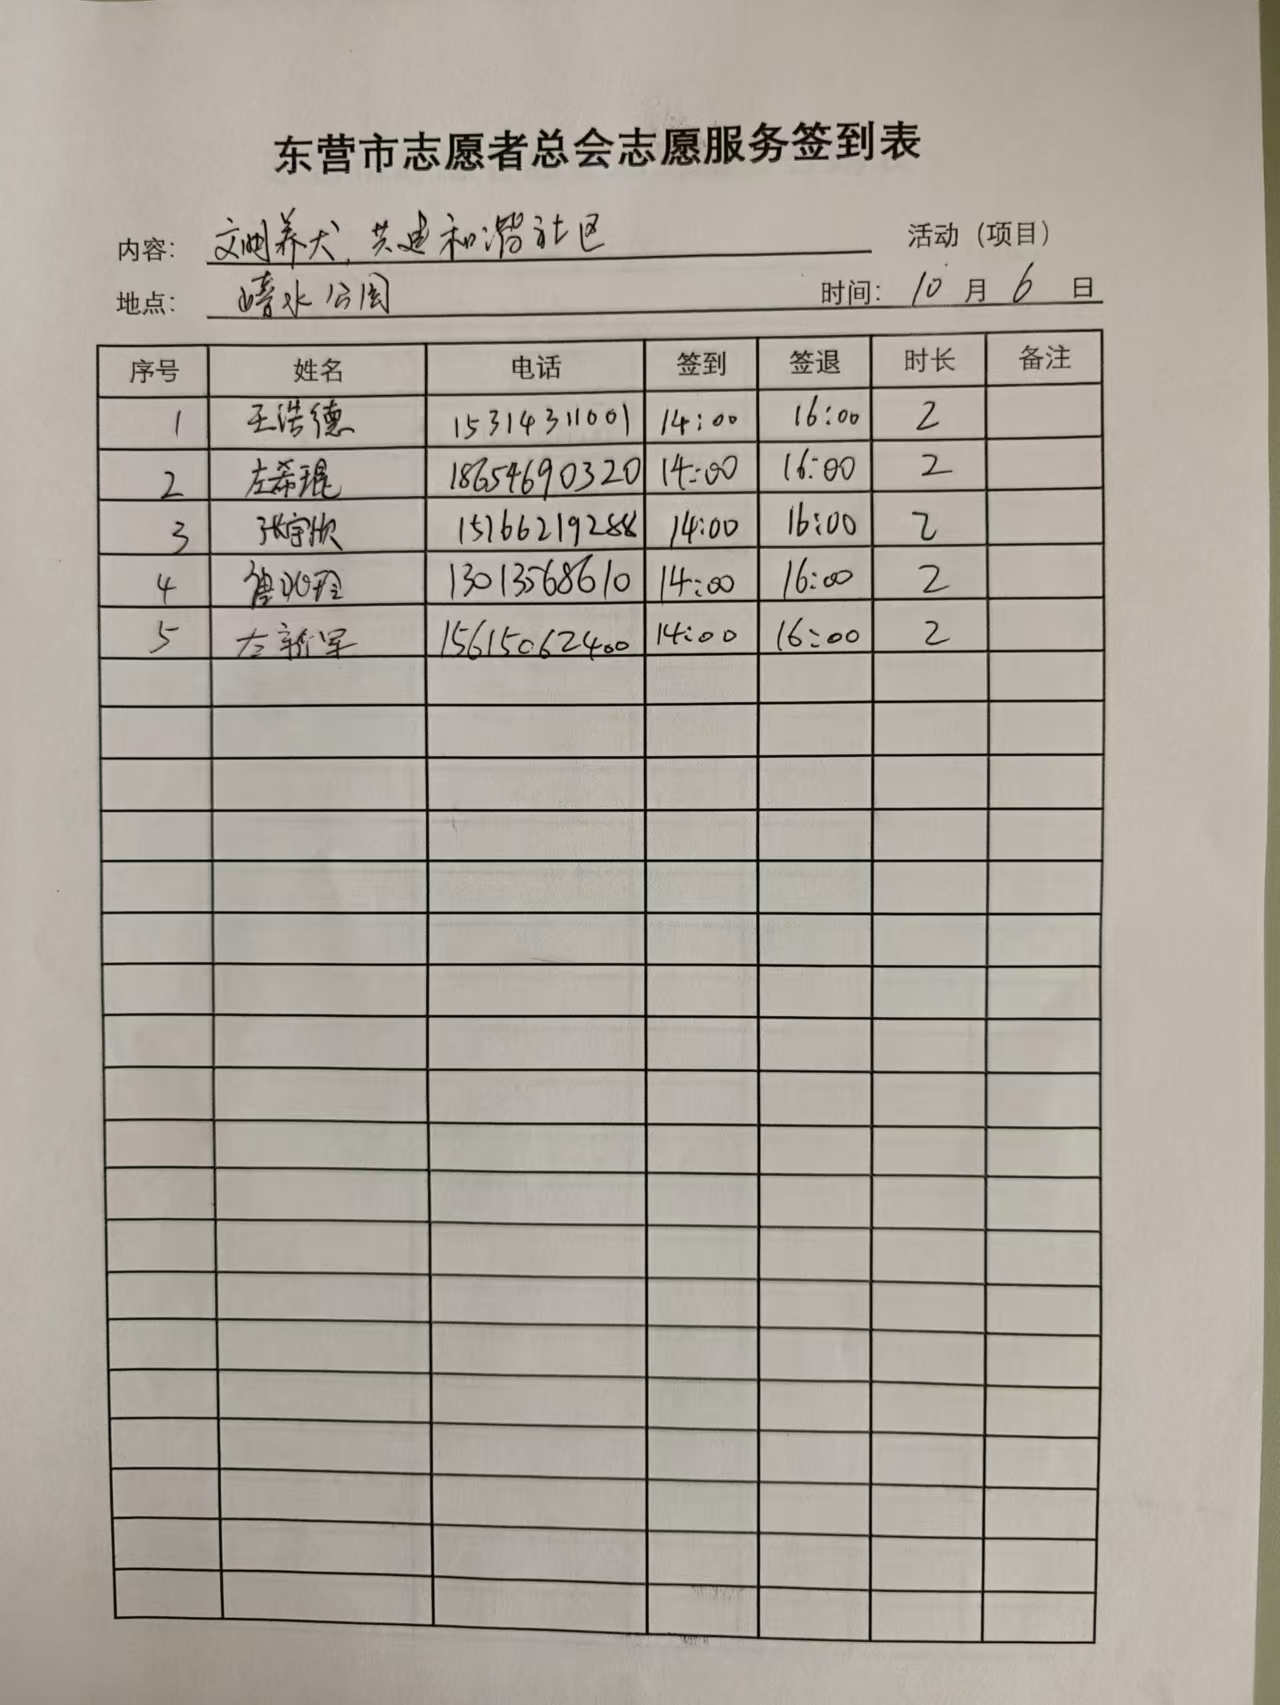 东营市志愿者总会志愿服务签到表
内容： 文明养犬，共建和谐社区 活动（项目）
地点： 清水公园 时间： 10 月 6 日
序号 姓名 电话 签到 签退 时长 备注
1 王浩德 15314311001 14:00 16:00 2
2 左希琨 18654690320 14:00 16:00 2
3 张宇欣 15166219288 14:00 16:00 2
4 13013568610 14:00 16:00 2
5 左新军 15615062400 14:00 16:00 2